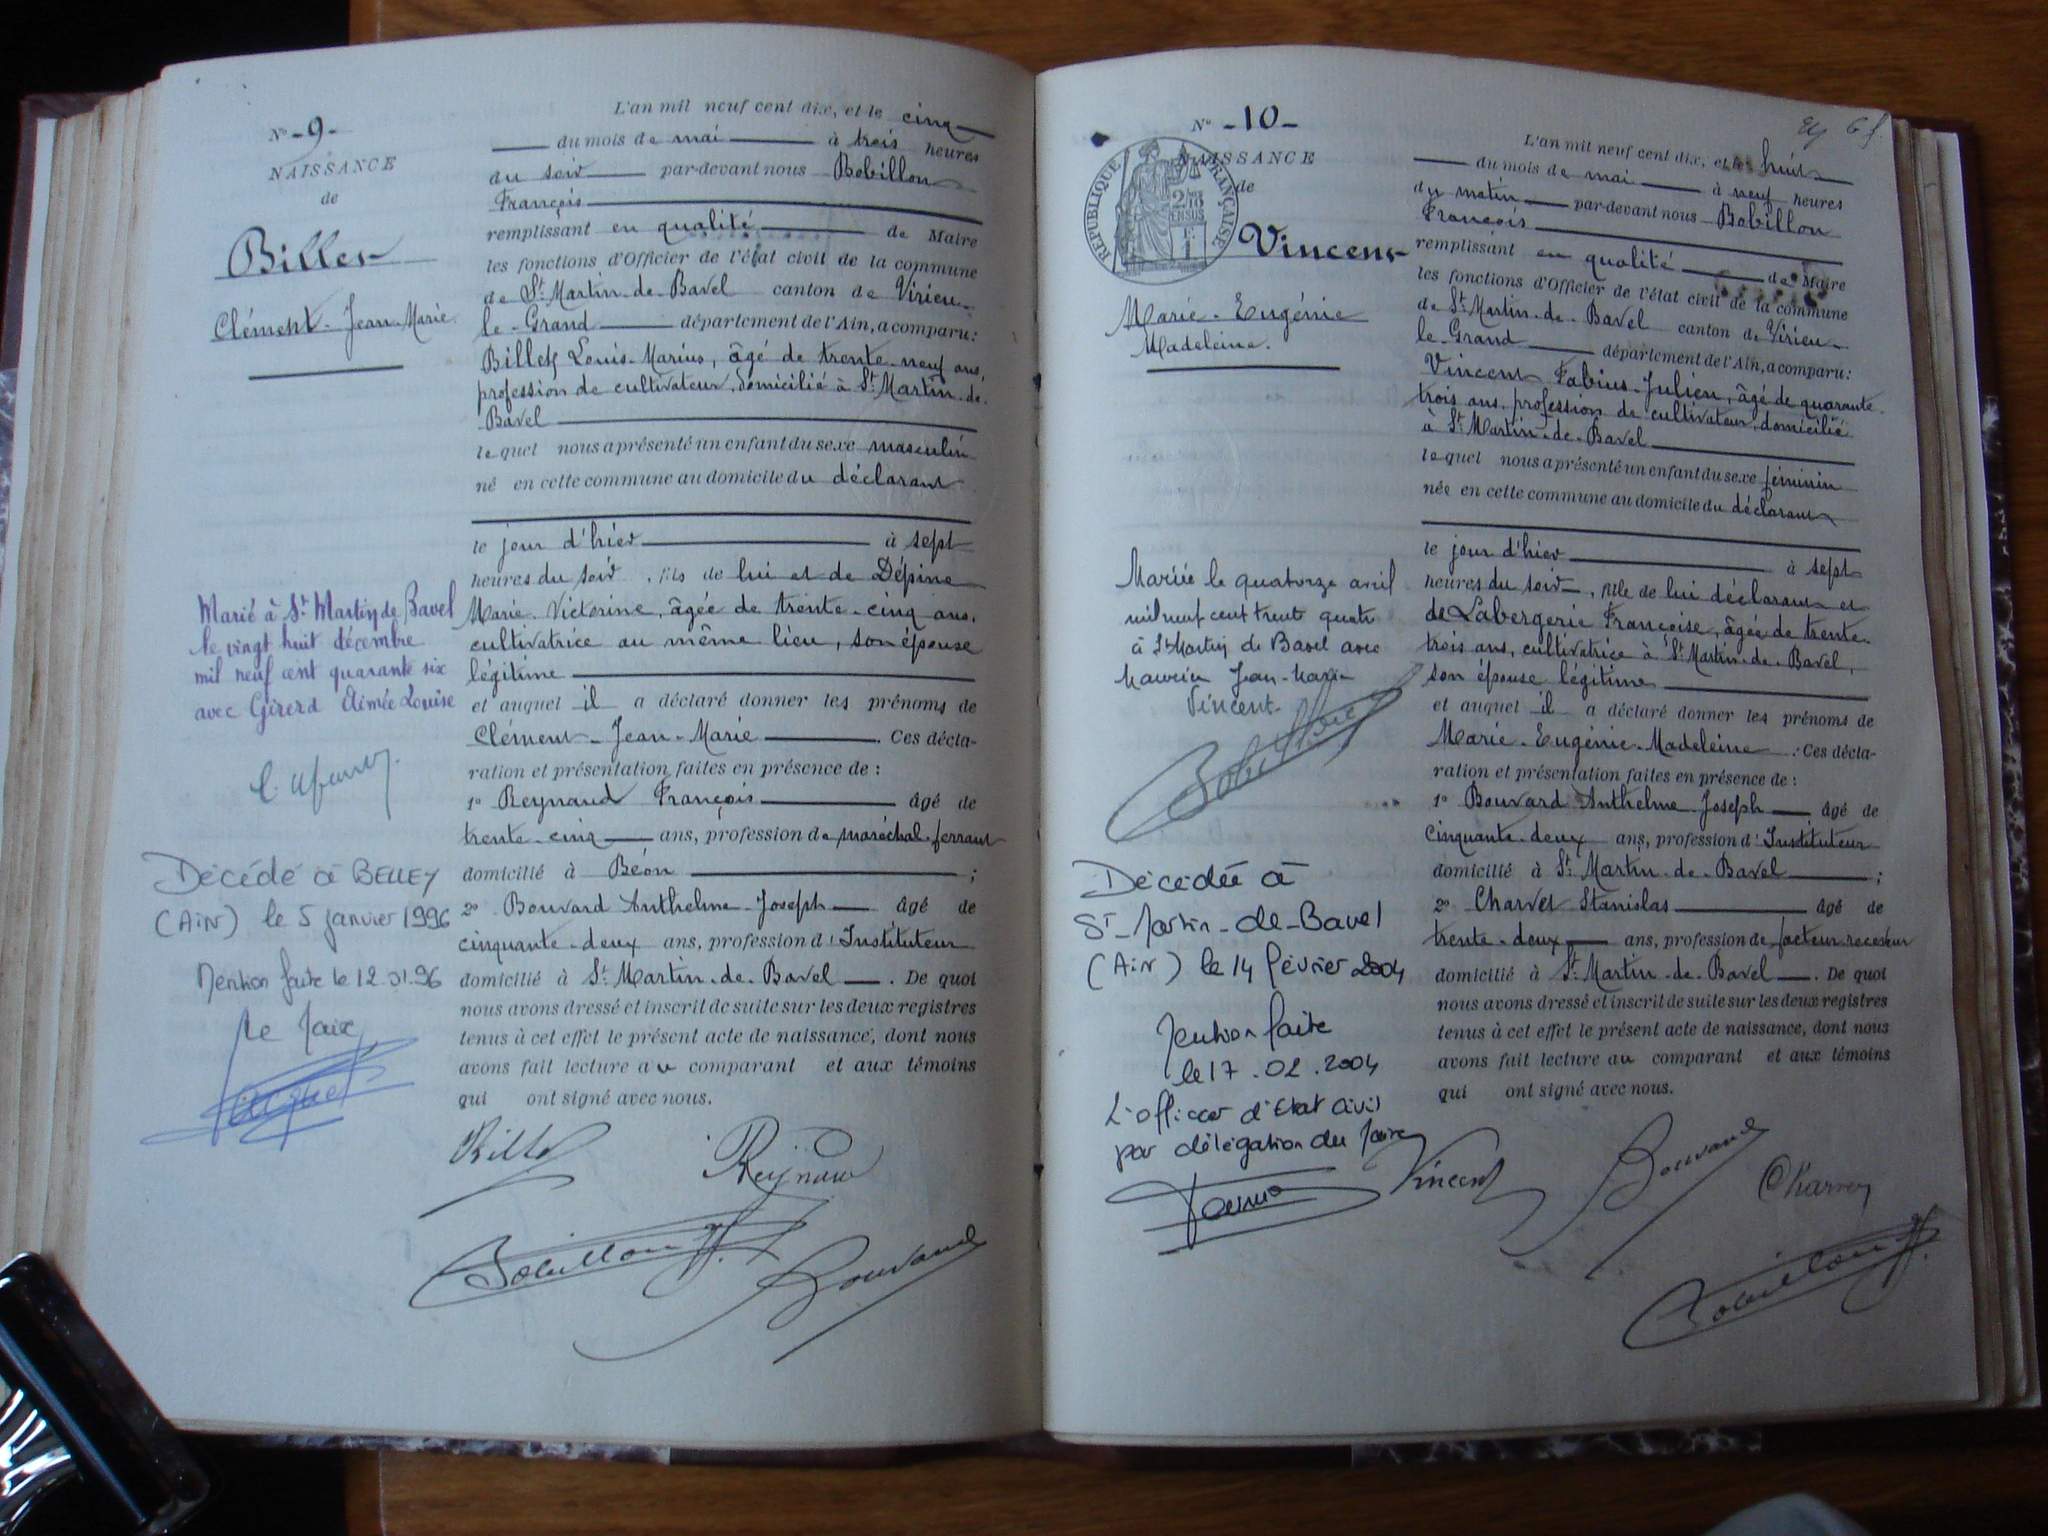 N° - 9 -
NAISSANCE
de
Billet
Clément-Jean-Marie
Marié à St Martin de Bavel
le vingt huit décembre
mil neuf cent quarante six
avec Girerd Aimée Louise
Décédé à BELLEY
(AiN) le 5 janvier 1996
Mention faite le 12.01.96
Le Maire
L'an mil neuf cent dix, et le cinq
du mois de mai à trois heures
du soir par-devant nous Bobillon
François
remplissant en qualité de Maire
les fonctions d'Officier de l'état civil de la commune
de St Martin-de-Bavel canton de Virieu-
le-Grand département de l'Ain, a comparu:
Billet Louis-Marius, âgé de trente-neuf ans,
profession de cultivateur, domicilié à St Martin-de-
Bavel
lequel nous a présenté un enfant du sexe masculin
né en cette commune au domicile du déclarant
le jour d'hier à sept
heures du soir, fils de lui et de Dépine
Marie Victorine, âgée de trente-cinq ans,
cultivatrice au même lieu, son épouse
légitime
et auquel il a déclaré donner les prénoms de
Clément-Jean-Marie. Ces décla-
ration et présentation faites en présence de :
1° Reynaud François âgé de
trente-cinq ans, profession de maréchal-ferrant
domicilié à Béon ;
2° Bouvard Anthelme-Joseph âgé de
cinquante-deux ans, profession d'Instituteur
domicilié à St Martin-de-Bavel. De quoi
nous avons dressé et inscrit de suite sur les deux registres
tenus à cet effet le présent acte de naissance, dont nous
avons fait lecture au comparant et aux témoins
qui ont signé avec nous.
Billet Reynaud
Bobillon F. Bouvard
N° - 10 -
NAISSANCE
de
RÉPUBLIQUE FRANÇAISE
2/10 EN SUS
Vincent
Marie-Eugénie
Madeleine.
Mariée le quatorze avril
mil neuf cent trente quatre
à St Martin de Bavel avec
Maurice Jean-Marie
Vincent-
Bobillon
Décédée à
St-Martin-de-Bavel
(AiN) le 14 février 2004
Mention faite
le 17.02.2004
L'officier d'Etat Civil
par délégation du Maire
L'an mil neuf cent dix, et le huit
du mois de mai à neuf heures
du matin par-devant nous Bobillon
François
remplissant en qualité de Maire
les fonctions d'Officier de l'état civil de la commune
de St Martin-de-Bavel canton de Virieu-
le-Grand département de l'Ain, a comparu:
Vincent Fabius-Julien, âgé de quarante-
trois ans, profession de cultivateur, domicilié
à St Martin-de-Bavel
lequel nous a présenté un enfant du sexe féminin
née en cette commune au domicile du déclarant
le jour d'hier à sept
heures du soir, fille de lui déclarant et
de Labergerie Françoise, âgée de trente-
trois ans, cultivatrice à St Martin-de-Bavel,
son épouse légitime
et auquel il a déclaré donner les prénoms de
Marie-Eugénie-Madeleine. Ces décla-
ration et présentation faites en présence de :
1° Bouvard Anthelme-Joseph âgé de
cinquante-deux ans, profession d'Instituteur
domicilié à St Martin-de-Bavel ;
2° Charvet Stanislas âgé de
trente-deux ans, profession de facteur-receveur
domicilié à St Martin-de-Bavel. De quoi
nous avons dressé et inscrit de suite sur les deux registres
tenus à cet effet le présent acte de naissance, dont nous
avons fait lecture au comparant et aux témoins
qui ont signé avec nous.
Vincent Bouvard Charvet
Bobillon F.